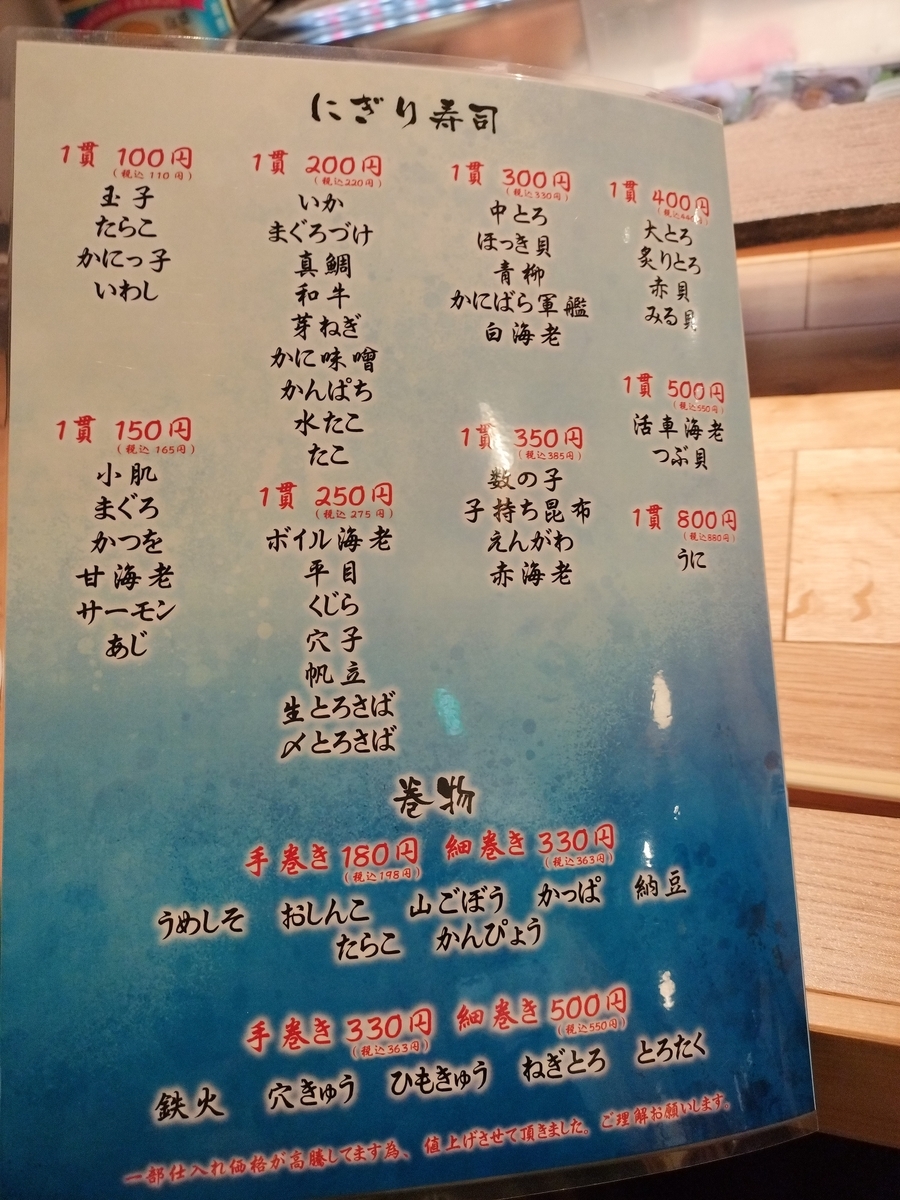 にぎり寿司
1貫 100円
(税込110円)
玉子
たらこ
かにっ子
いわし
1貫 150円
(税込165円)
小肌
まぐろ
かつを
甘海老
サーモン
あじ
1貫 200円
(税込220円)
いか
まぐろづけ
真鯛
和牛
芽ねぎ
かに味噌
かんぱち
水たこ
たこ
1貫 250円
(税込275円)
ボイル海老
平目
くじら
穴子
帆立
生とろさば
〆とろさば
1貫 300円
(税込330円)
中とろ
ほっき貝
青柳
かにばら軍艦
白海老
1貫 350円
(税込385円)
数の子
子持ち昆布
えんがわ
赤海老
1貫 400円
(税込440円)
大とろ
炙りとろ
赤貝
みる貝
1貫 500円
(税込550円)
活車海老
つぶ貝
1貫 800円
(税込880円)
うに
巻物
手巻き 180円 細巻き 330円
(税込198円) (税込363円)
うめしそ おしんこ 山ごぼう かっぱ 納豆
たらこ かんぴょう
手巻き 330円 細巻き 500円
(税込363円) (税込550円)
鉄火 穴きゅう ひもきゅう ねぎとろ とろたく
一部仕入れ価格が高騰してます為、値上げさせて頂きました。ご理解お願いします。